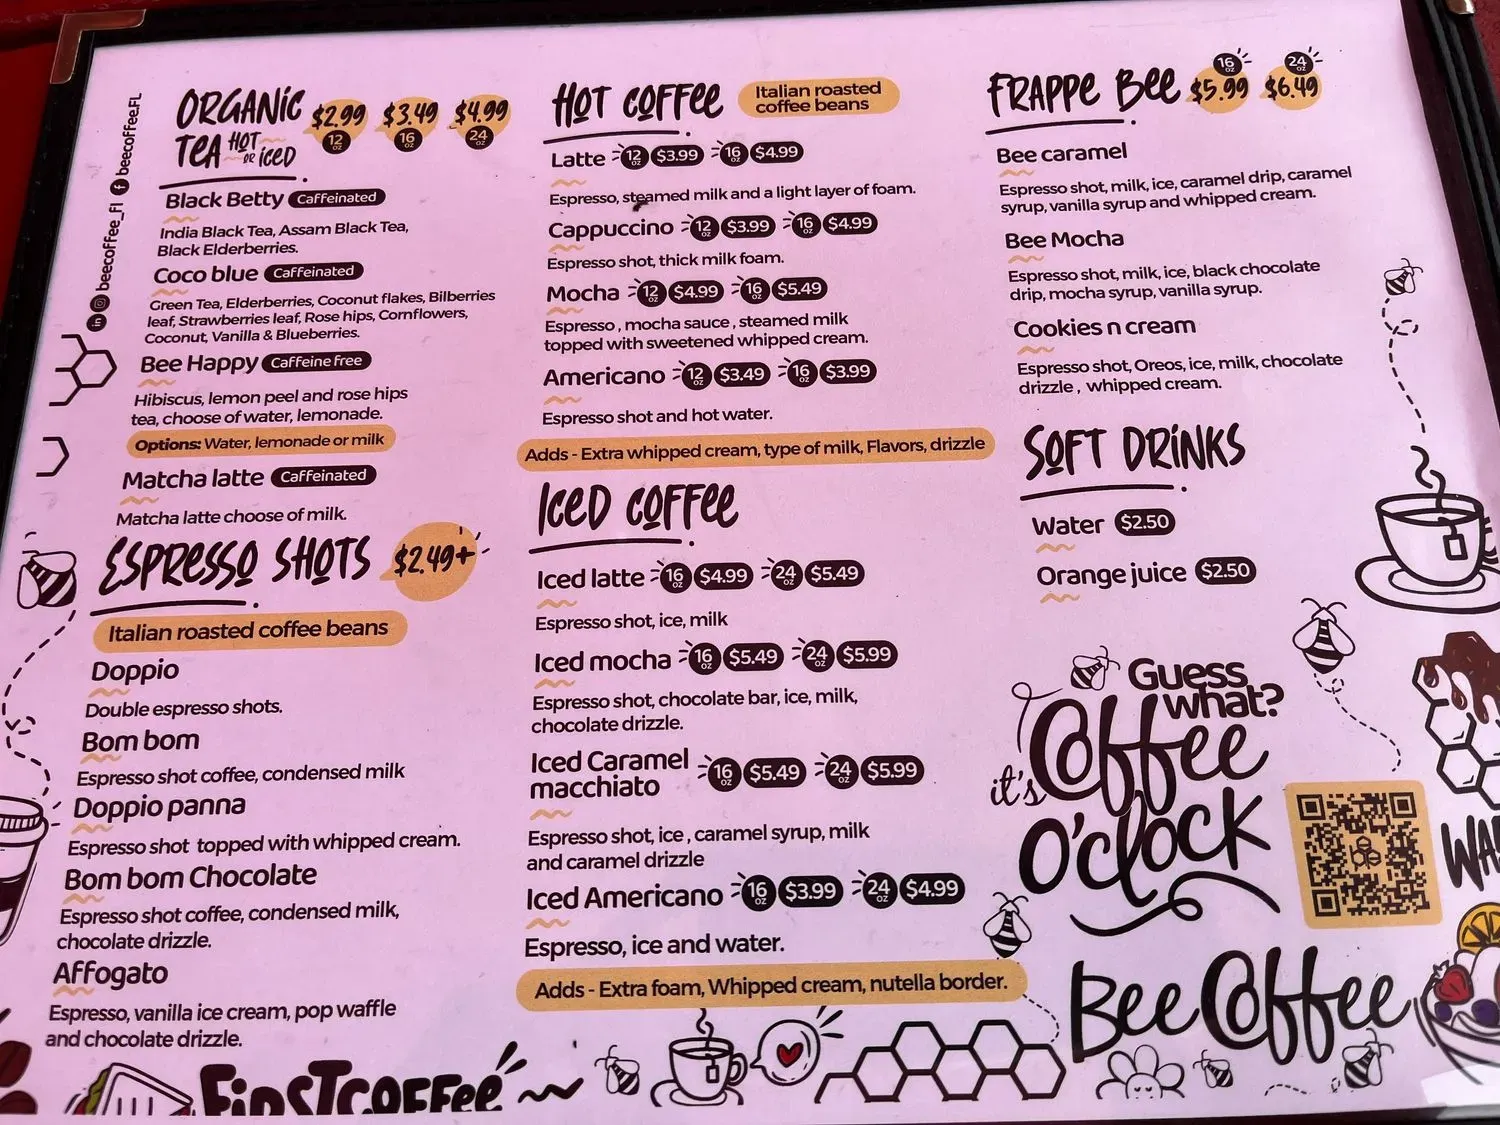 beecoffee_Fl beecoffee.FL
ORGANiC
TEA HOT OR iCED
$2.99 $3.49 $4.99
12 oz 16 oz 24 oz
Black Betty Caffeinated
India Black Tea, Assam Black Tea,
Black Elderberries.
Coco blue Caffeinated
Green Tea, Elderberries, Coconut flakes, Bilberries
leaf, Strawberries leaf, Rose hips, Cornflowers,
Coconut, Vanilla & Blueberries.
Bee Happy Caffeine free
Hibiscus, lemon peel and rose hips
tea, choose of water, lemonade.
Options: Water, lemonade or milk
Matcha latte Caffeinated
Matcha latte choose of milk.
ESPRESSO SHOTS $2.49+
Italian roasted coffee beans
Doppio
Double espresso shots.
Bom bom
Espresso shot coffee, condensed milk
Doppio panna
Espresso shot topped with whipped cream.
Bom bom Chocolate
Espresso shot coffee, condensed milk,
chocolate drizzle.
Affogato
Espresso, vanilla ice cream, pop waffle
and chocolate drizzle.
HOT COFFEE
Italian roasted
coffee beans
Latte 12 oz $3.99 16 oz $4.99
Espresso, steamed milk and a light layer of foam.
Cappuccino 12 oz $3.99 16 oz $4.99
Espresso shot, thick milk foam.
Mocha 12 oz $4.99 16 oz $5.49
Espresso , mocha sauce , steamed milk
topped with sweetened whipped cream.
Americano 12 oz $3.49 16 oz $3.99
Espresso shot and hot water.
Adds - Extra whipped cream, type of milk, Flavors, drizzle
ICED COFFEE
Iced latte 16 oz $4.99 24 oz $5.49
Espresso shot, ice, milk
Iced mocha 16 oz $5.49 24 oz $5.99
Espresso shot, chocolate bar, ice, milk,
chocolate drizzle.
Iced Caramel
macchiato 16 oz $5.49 24 oz $5.99
Espresso shot, ice , caramel syrup, milk
and caramel drizzle
Iced Americano 16 oz $3.99 24 oz $4.99
Espresso, ice and water.
Adds - Extra foam, Whipped cream, nutella border.
FRAPPE BEE
16 oz 24 oz
$5.99 $6.49
Bee caramel
Espresso shot, milk, ice, caramel drip, caramel
syrup, vanilla syrup and whipped cream.
Bee Mocha
Espresso shot, milk, ice, black chocolate
drip, mocha syrup, vanilla syrup.
Cookies n cream
Espresso shot, Oreos, ice, milk, chocolate
drizzle , whipped cream.
SOFT DRiNKS
Water $2.50
Orange juice $2.50
Guess
what?
it's Coffee
O'clock
Bee Coffee
FiRST COFFee